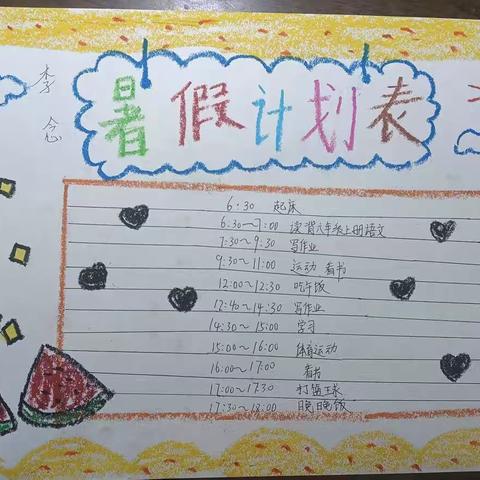 暑假计划表
李念
6:30 起床
6:30~7:00 读背六年级上册语文
7:30~9:30 写作业
9:30~11:00 运动 看书
12:00~12:30 吃午饭
12:40~14:30 写作业
14:30~15:00 学习
15:00~16:00 体育运动
16:00~17:00 看书
17:00~17:30 打篮球
17:30~18:00 晚饭